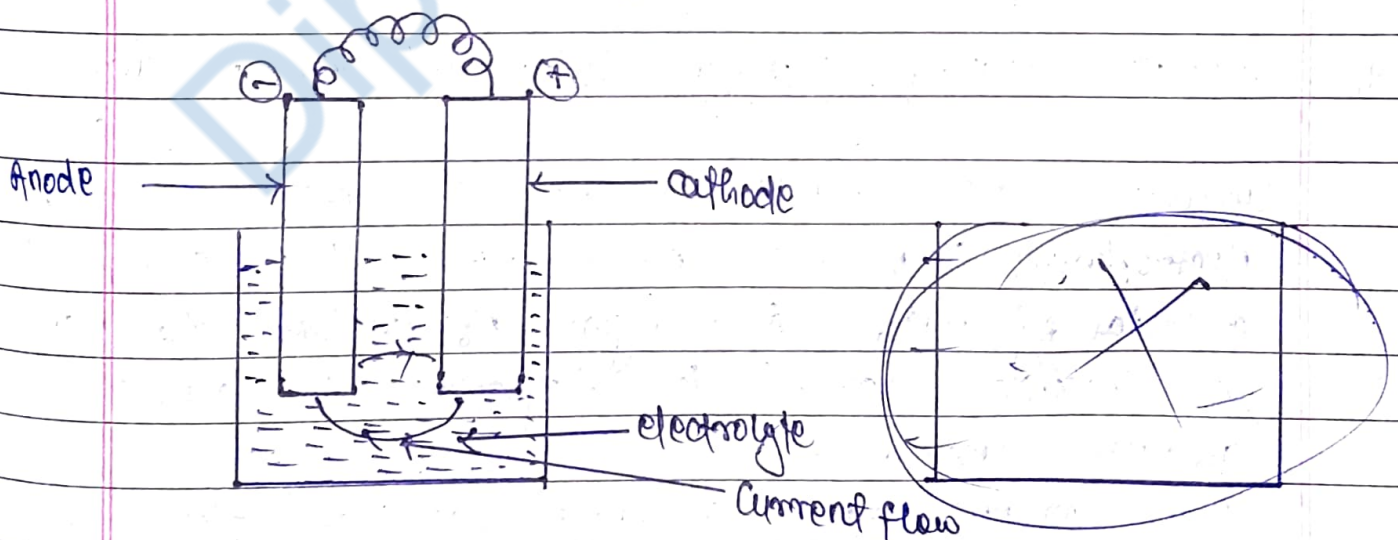 Dip
(-)
(+)
Anode
Cathode
electrolyte
Current flow